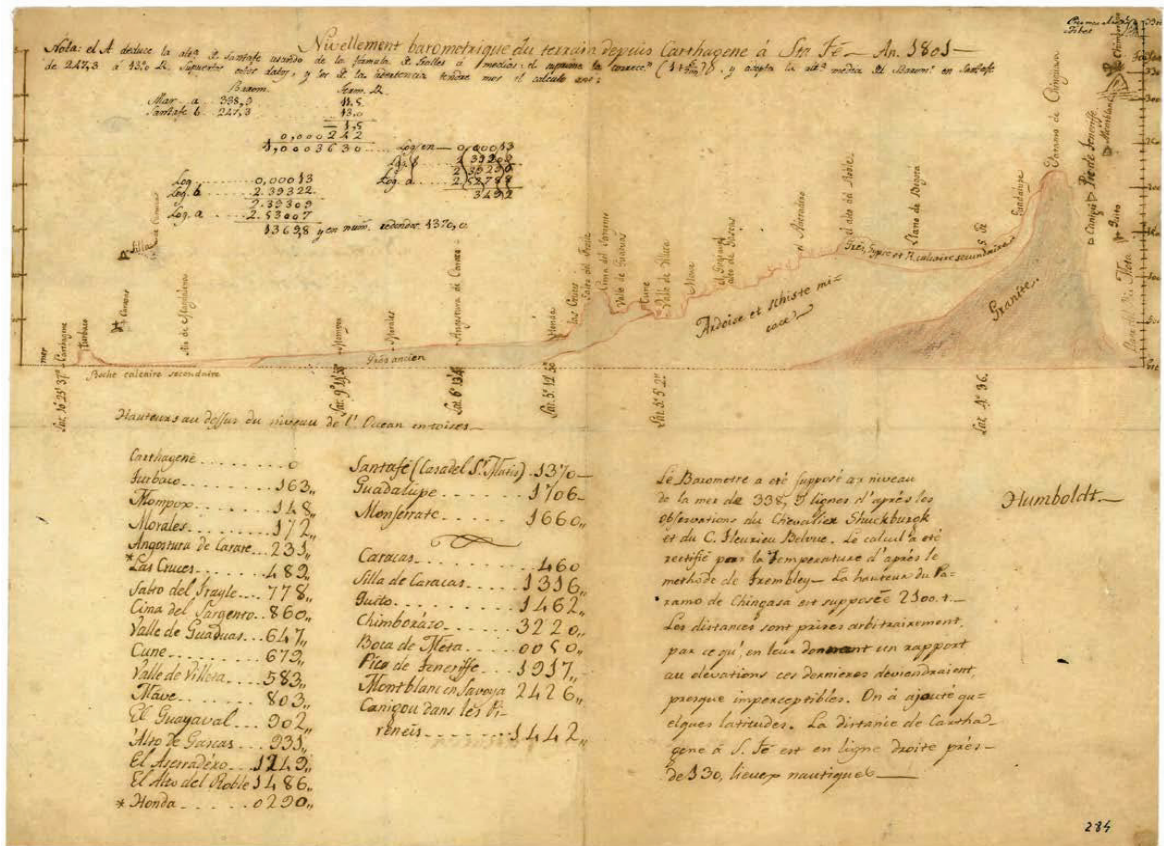 Nivellement barometrique du terrain depuis Carthagene á Sta Fé — An. 1801 —
Nota: el A deduce la alta. de Santafe usando de la formula
de 247,3 á 13.0 R.
Barom. Term. R.
Mar a 338,0 11.5
Santafe b. 247,3 13.0
1,5
0,000242
1,0003630
Log. 0,00013
Log. b. 2.39322
2.39309
Log. a 2.53007
13698 y en num. redondos 1370,0.
Silla de Caracas
Caracas
mer
Carthagene
Turbaco
Rio de Magdalena
Mompox
Morales
Angostura de Carare
Honda
las Cruces
Salto del Frayle
Cima del Sargento
Valle de Guaduas
Cune
Valle de Villeta
Mave
el Guayaval
alto de Gascas
el Aserradero
el alto del Roble
Llano de Bogota
S. Fé
Guadalupe
Paramo de Chingasa
Canigú
Pic de Teneriffe
Quito
Montblanc
Boca del Rio Meta
Grés, Gypse et R. calcaire secundaire
Ardoise et schiste mi-
cacé
Granite
Grés ancien
Roche calcaire secundaire
Lat. 10°25'37"
Lat. 5° 5' 2"
Lat. 4° 36.
Hauteurs au dessus du niveau de l'Ocean en toises —
Carthagene . . . . . . . 0
Turbaco . . . . . . . 163,,
Mompox . . . . . . . 148,,
Morales . . . . . . . 172,,
Angostura de Carare . . . 231,,
*Las Cruces . . . . . . 482,,
Salto del Frayle . . . . 778,,
Cima del Sargento . . 860,,
Valle de Guaduas . . . 647,,
Cune . . . . . . . 679,,
Valle de Villeta . . . . 583,,
Mave . . . . . . . 803,,
El Guayaval . . . . 902,,
Alto de Gascas . . . . 931,,
El Aserradéro . . . . 1249,,
El Alto del Roble 1486,,
* Honda . . . . . . . 0290,,
Santafé (Casa del Sr. Mutis) . 1370 —
Guadalupe . . . . . . . 1706 —
Monserrate . . . . . . . 1660,,
Caracas . . . . . . . 460
Silla de Caracas . . . . . 1316,,
Quito . . . . . . . 1462,,
Chimborazo . . . . . . . 3220,,
Boca de Meta . . . . . . . 0050,,
Pico de Teneriffe . . . . . 1917,,
Montblanc en Savoya 2426,,
Canigou dans les Pi-
reneis . . . . . . . 1442,,
Le Barometre a eté supposé au niveau
de la mer de 338, 9 lignes d'après les
observations du Chevalier Shuckburgk
et du C. Fleurieu Belvue. Le calcul a eté
rectifié par la Temperature d'apres le
methode de Trembley — La hauteur du Pa=
ramo de Chingasa est supposée 2100. t. —
Les distances sont prises arbitrairement,
par ce qu'en leur donnant un rapport
au elévations ces dernieres deviendraient,
presque imperceptibles. On á ajouté qu=
elques latitudes. La distance de Cartha=
gene á S. Fé est en ligne droite près —
de 130, lieues nautiques —
Humboldt —
284